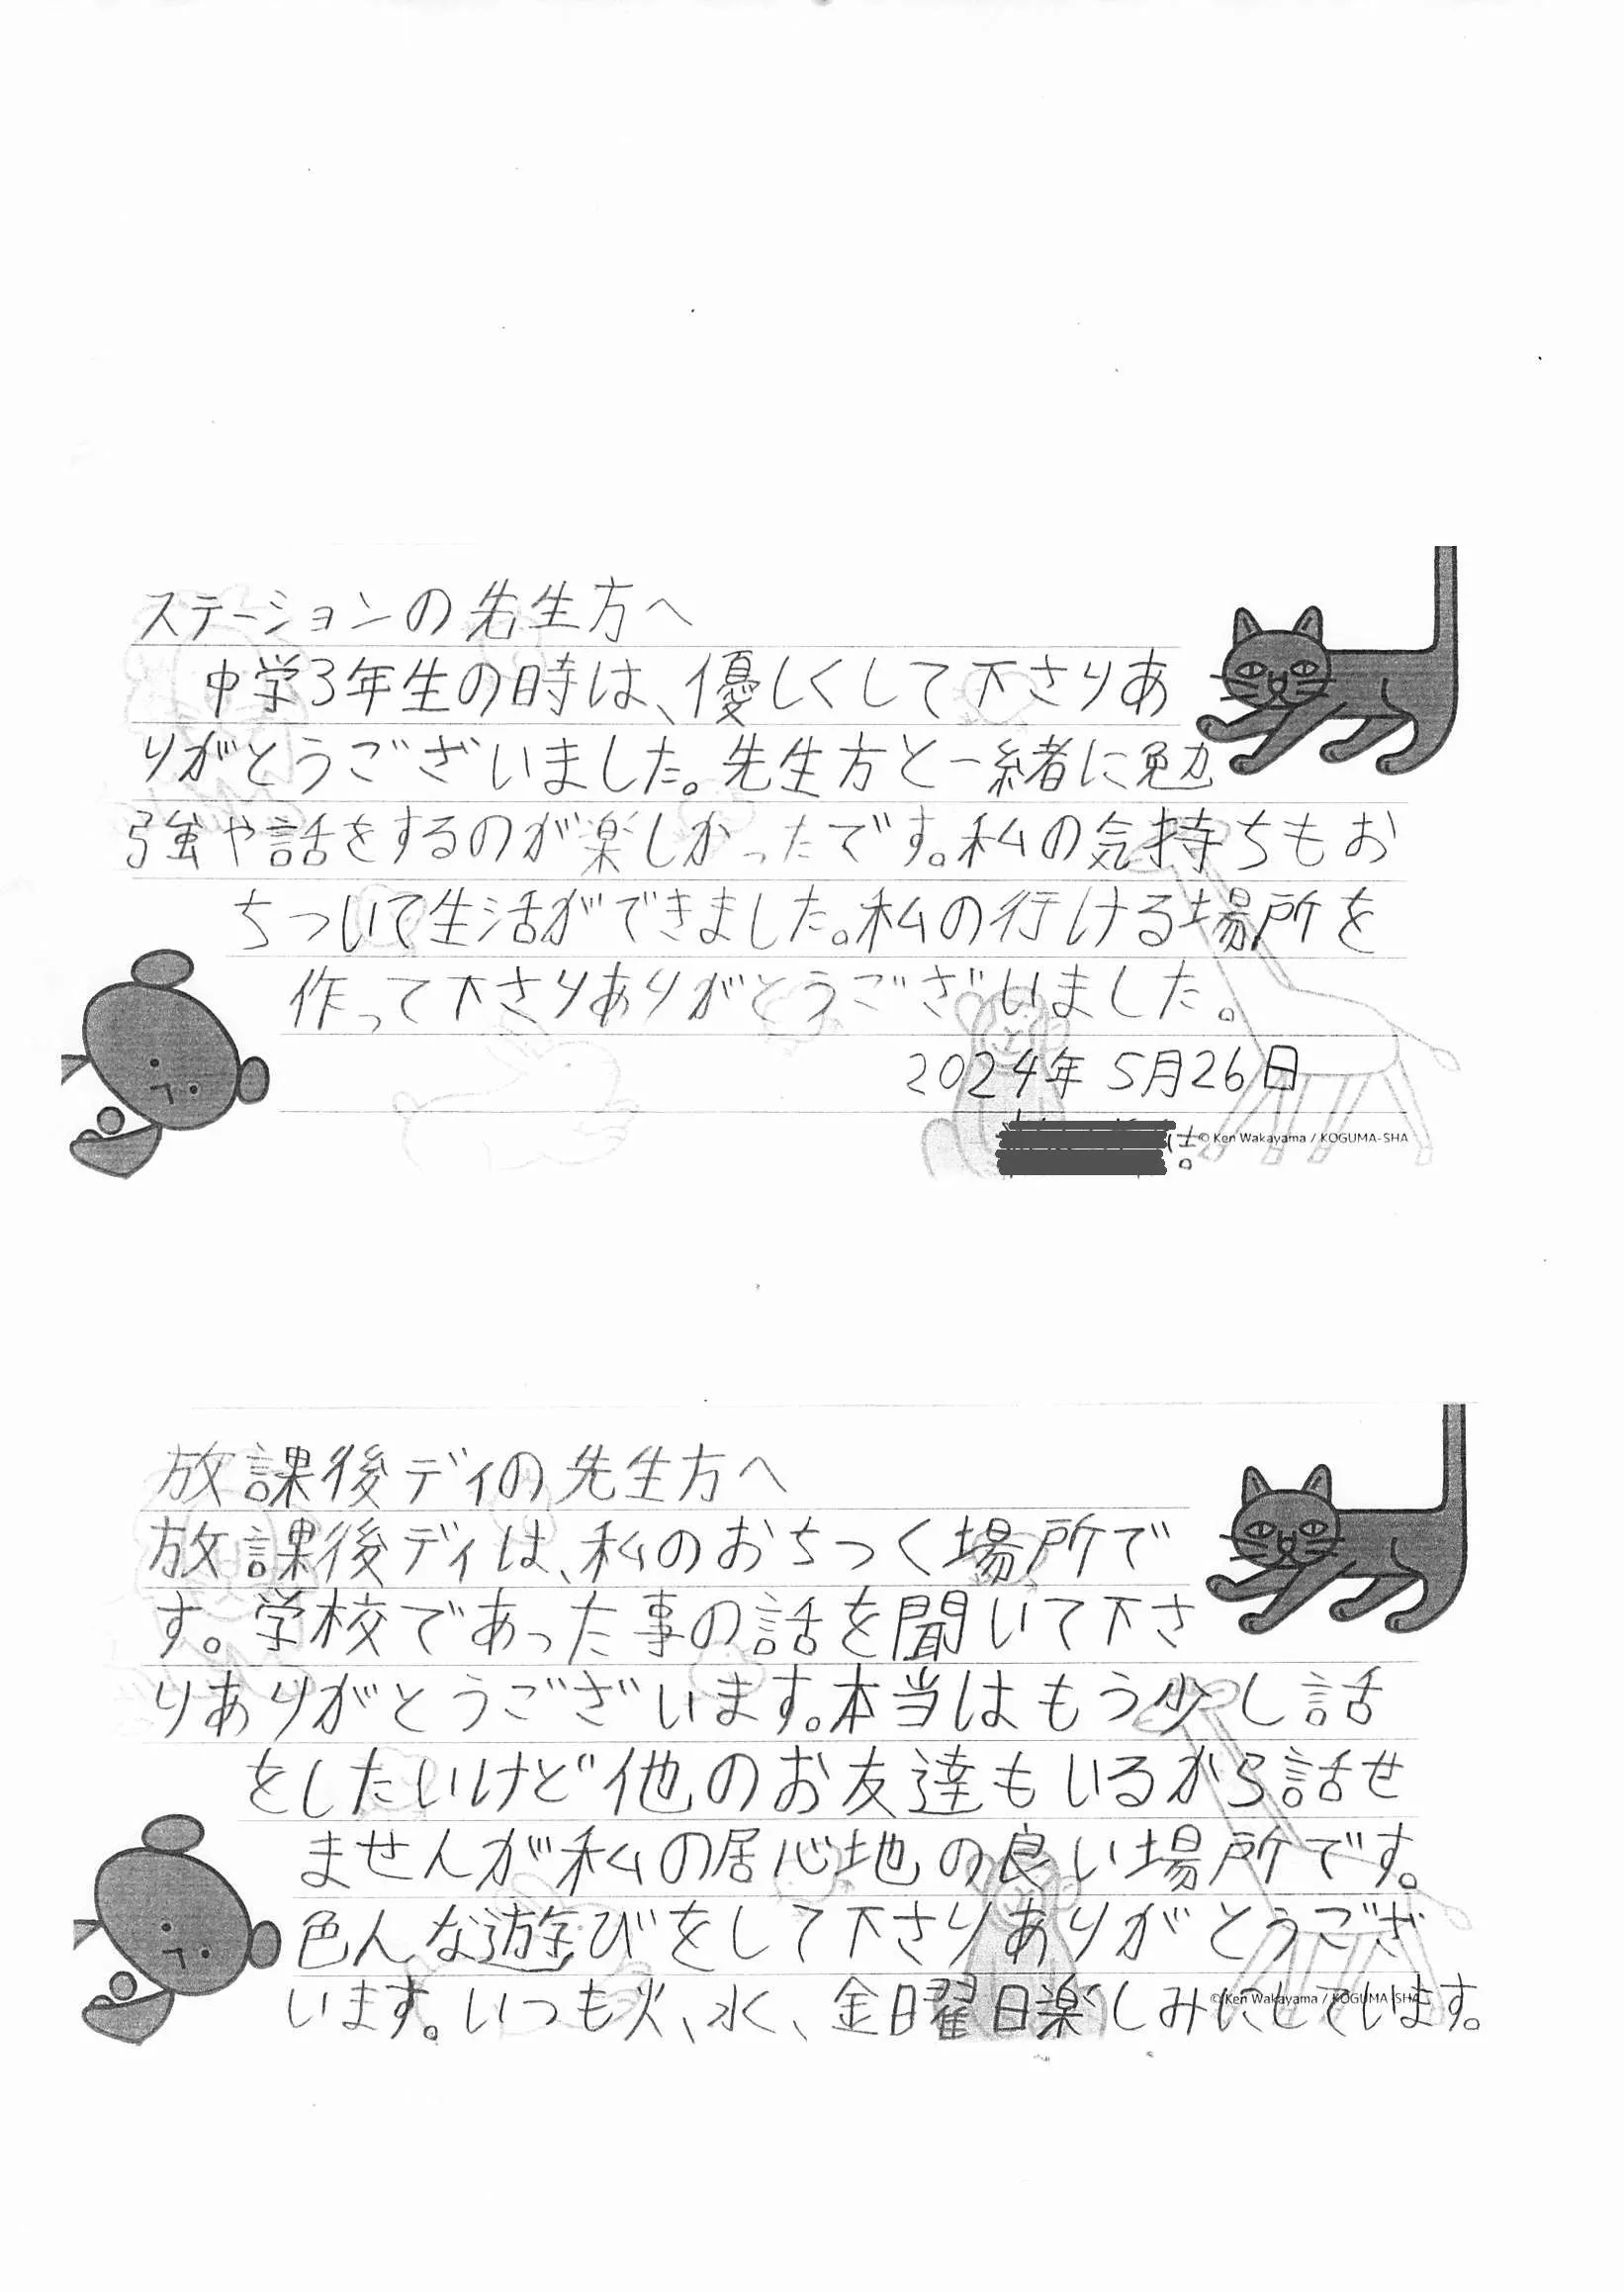 ステーションの先生方へ
中学3年生の時は、優しくして下さりあ
りがとうございました。先生方と一緒に勉
強や話をするのが楽しかったです。私の気持ちもお
ちついて生活ができました。私の行ける場所を
作って下さりありがとうございました。
2024年 5月26日
© Ken Wakayama / KOGUMA-SHA
放課後ディの先生方へ
放課後ディは、私のおちつく場所で
す。学校であった事の話を聞いて下さ
りありがとうございます。本当はもう少し話
をしたいけど他のお友達もいるから話せ
ませんが私の居心地の良い場所です。
色んな遊びをして下さりありがとうござ
います。いつも火、水、金曜日楽しみにしています。
© Ken Wakayama / KOGUMA-SHA